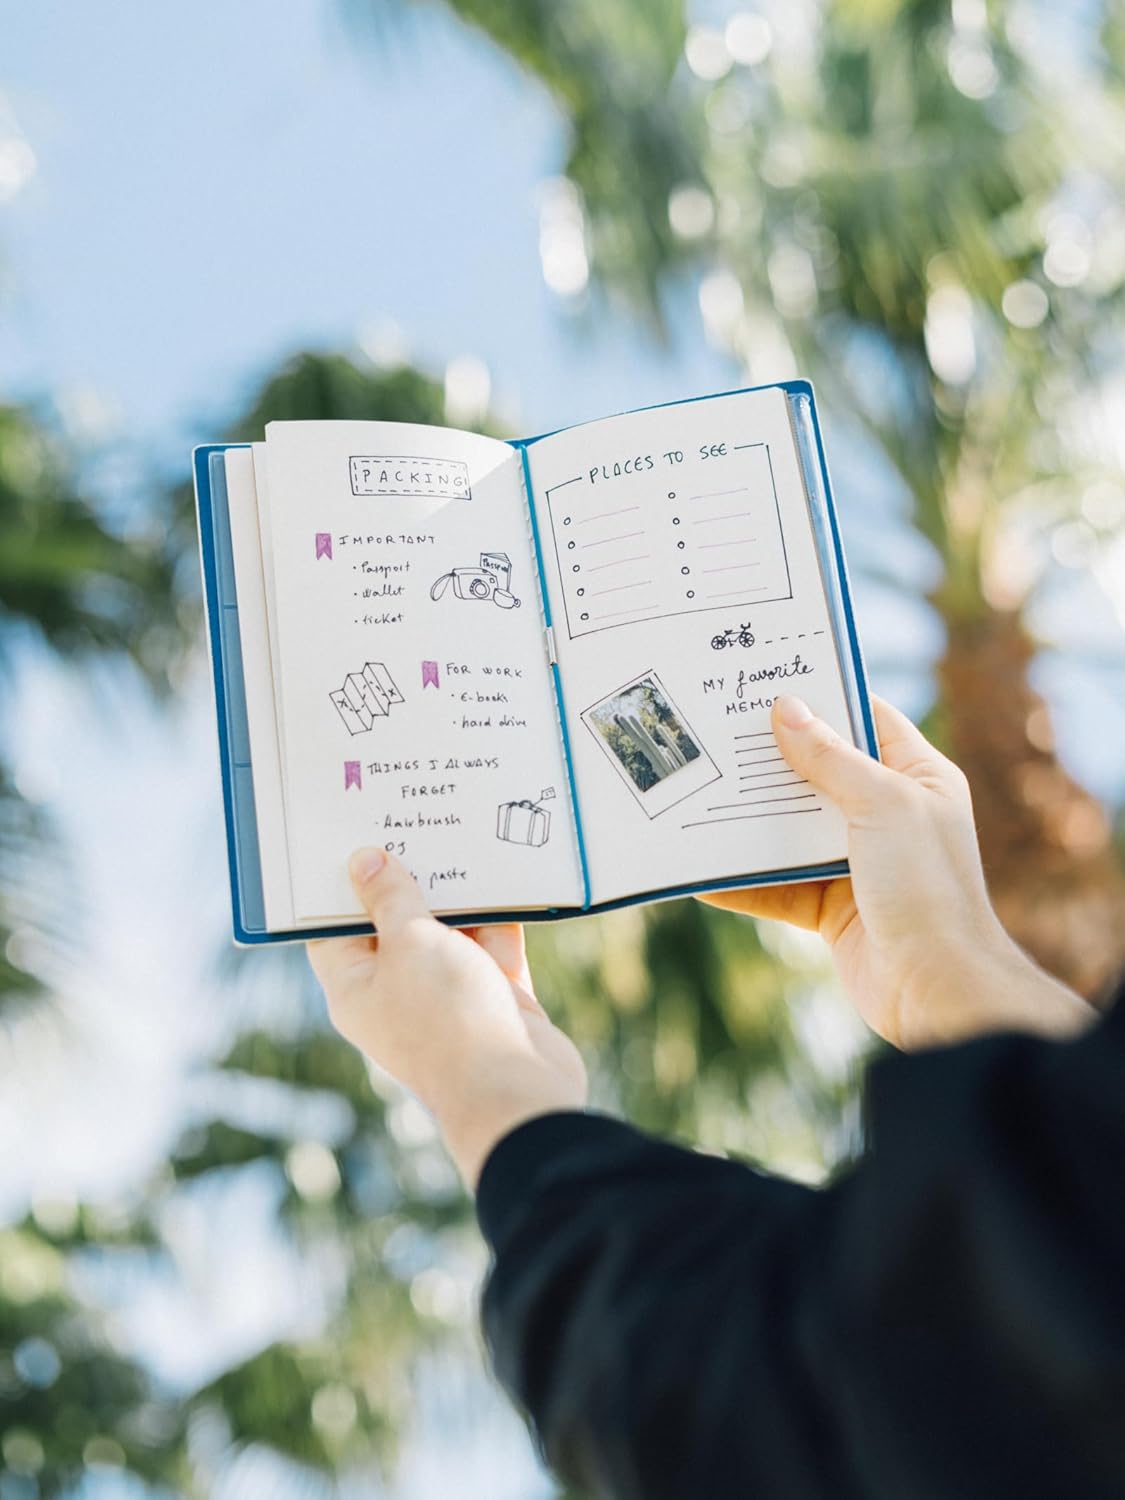 PACKING
IMPORTANT
• Passport
• wallet
• ticket
Passport
FOR WORK
• E-books
• hard drive
THINGS I ALWAYS
FORGET
- Hairbrush
paste
PLACES TO SEE
MY favorite